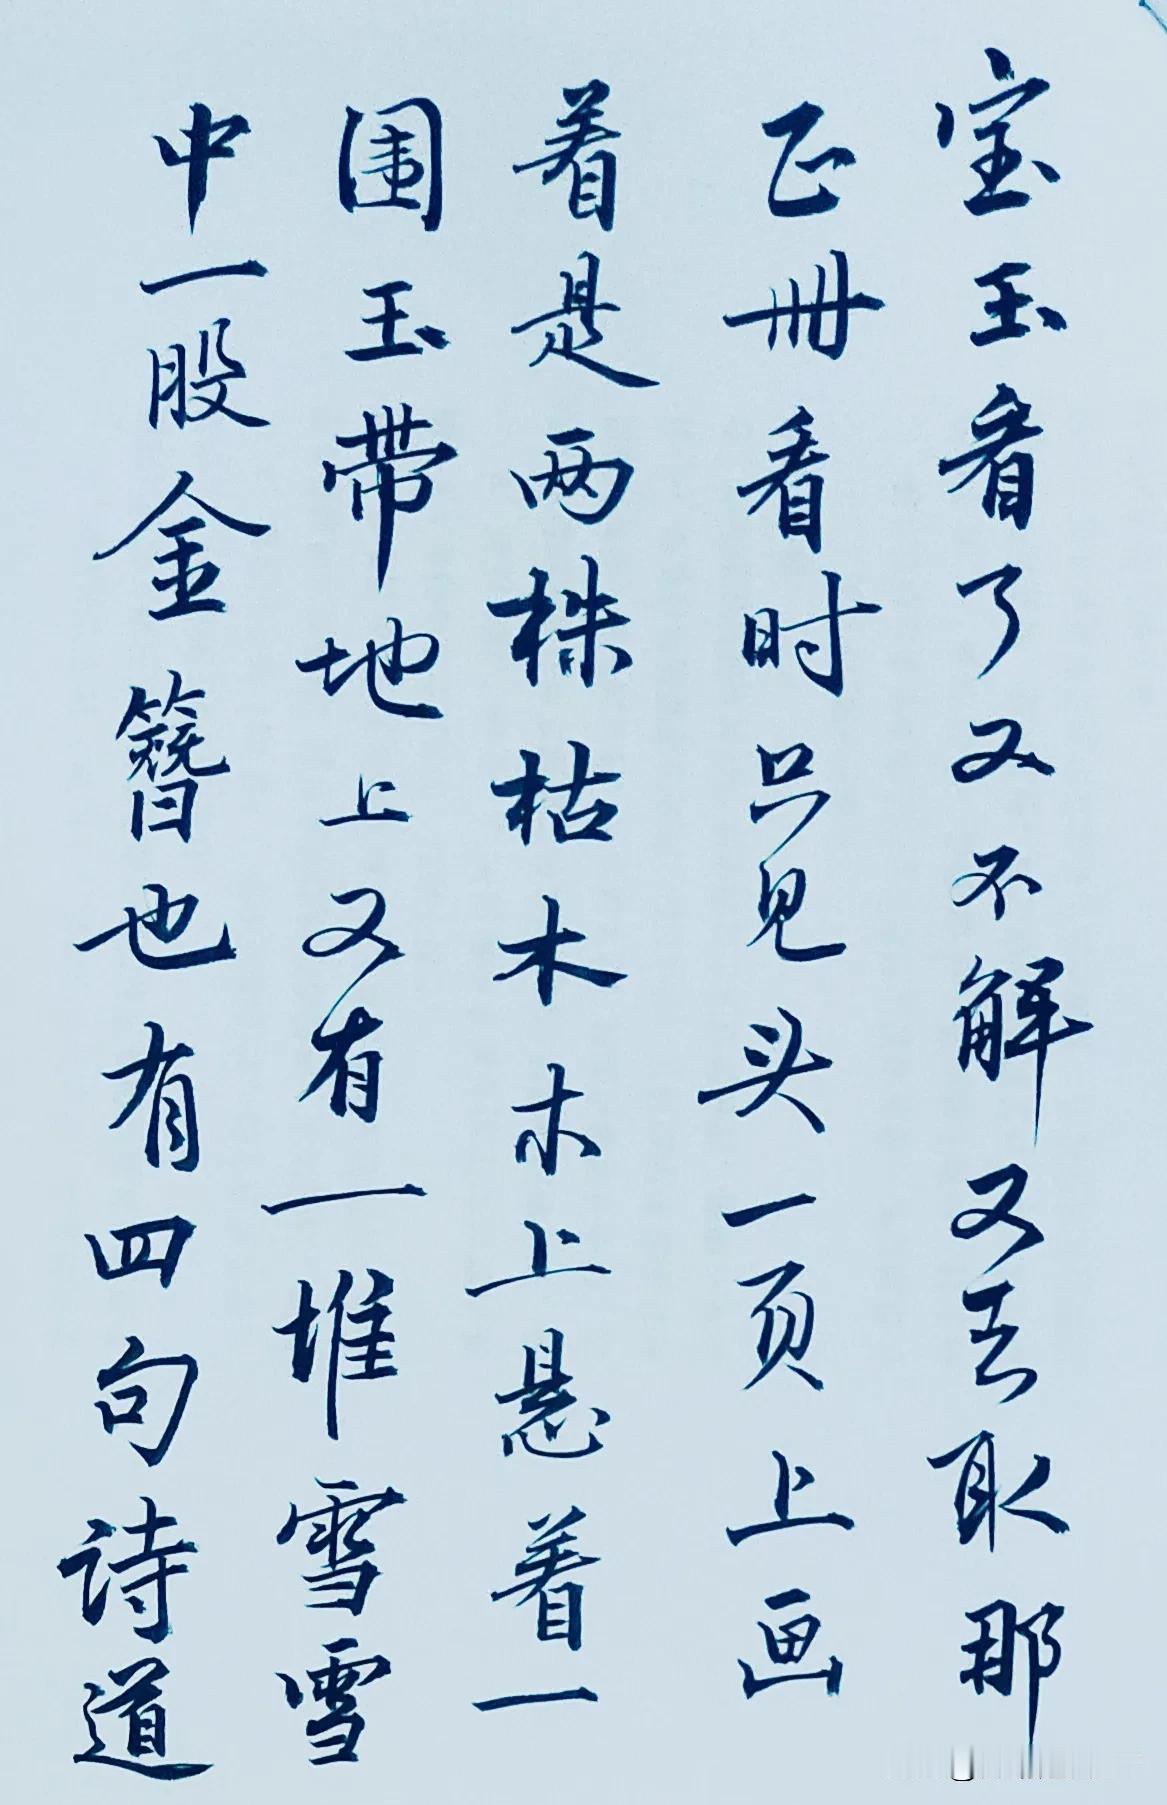 宝玉看了又不解又去取那
正册看时只见头一页上画
着是两株枯木木上悬着一
围玉带地上又有一堆雪雪
中一股金簪也有四句诗道